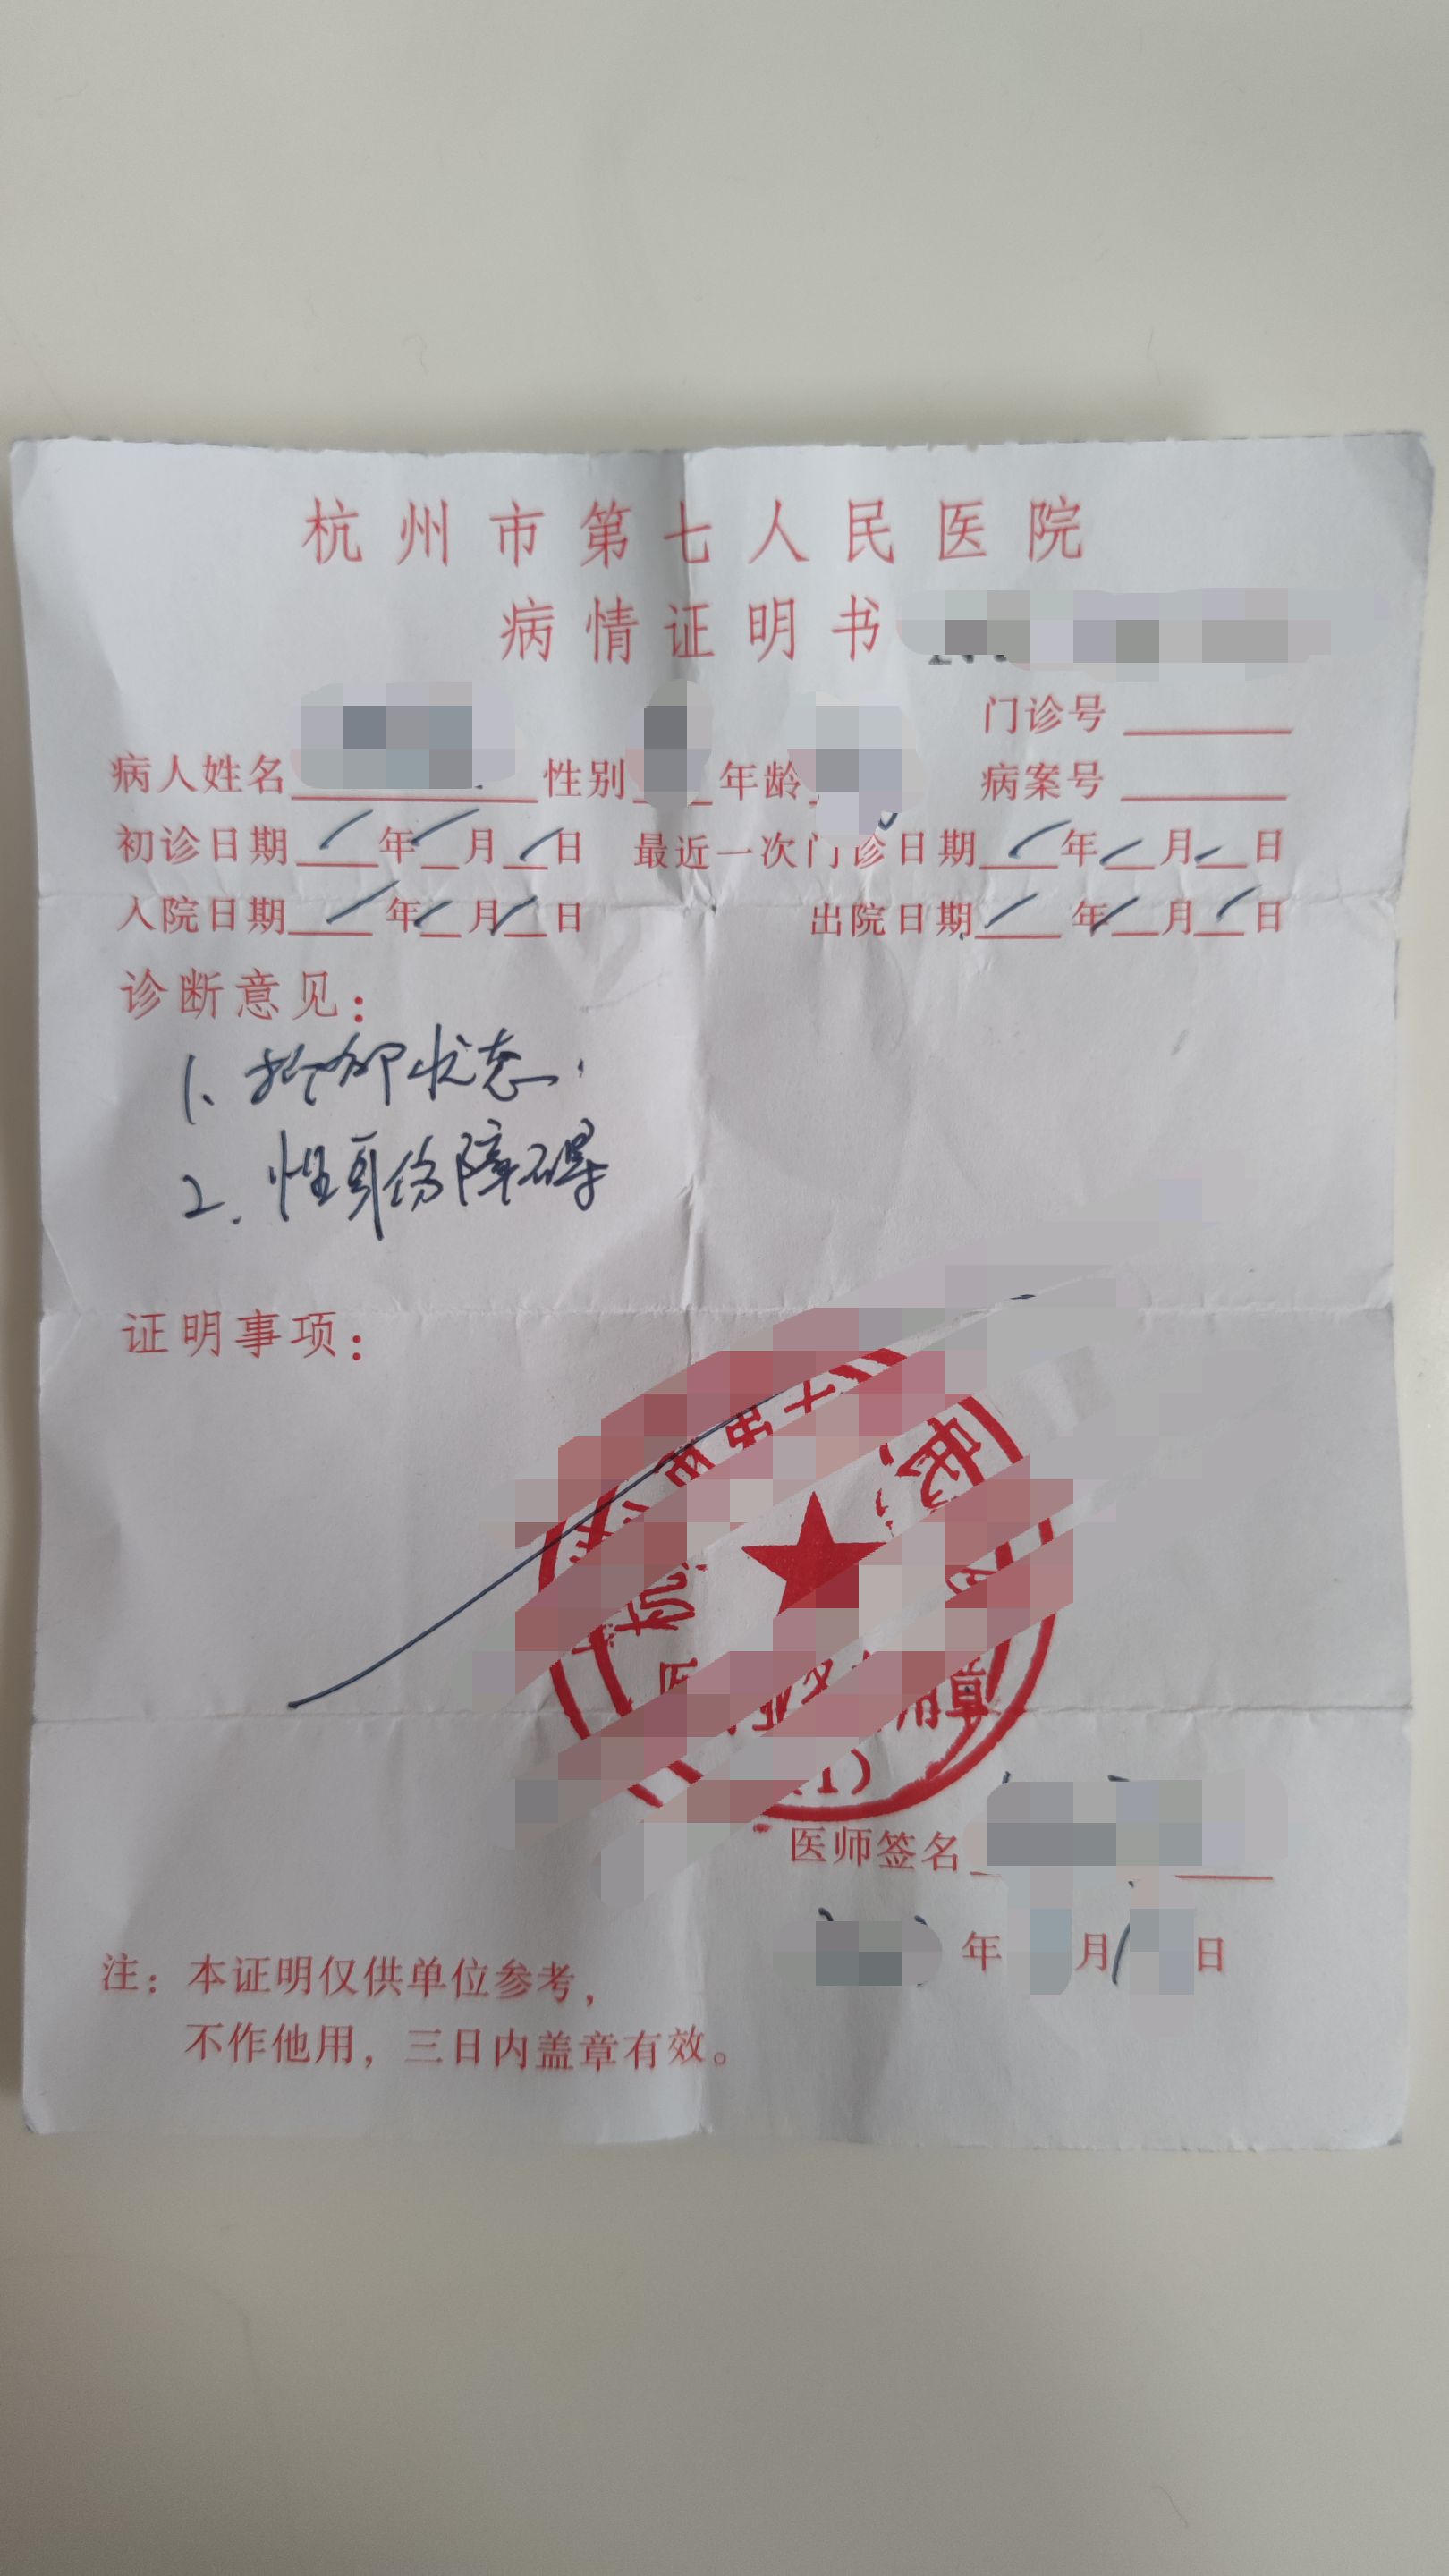 杭州市第七人民医院
病情证明书
门诊号
病人姓名 性别 年龄 病案号
初诊日期 / 年 / 月 / 日 最近一次门诊日期 / 年 / 月 / 日
入院日期 / 年 / 月 / 日 出院日期 / 年 / 月 / 日
诊断意见：
1、抑郁状态，
2、性身份障碍
证明事项：
章
(1)
医师签名
年 月 日
注：本证明仅供单位参考，
不作他用，三日内盖章有效。